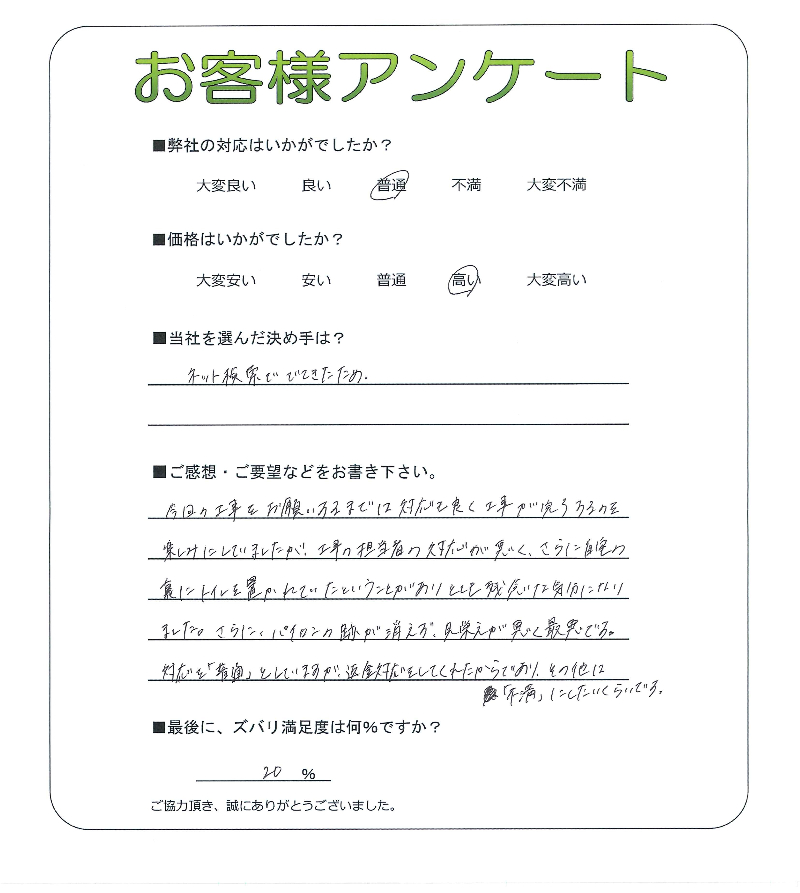 お客様アンケート
■弊社の対応はいかがでしたか？
大変良い 良い 普通 不満 大変不満
■価格はいかがでしたか？
大変安い 安い 普通 高い 大変高い
■当社を選んだ決め手は？
ネット検索ででてきたため.
■ご感想・ご要望などをお書き下さい。
今回の工事をお願いするまでは対応も良く工事が完了するのを
楽しみにしていましたが、工事の担当者の対応が悪く、さらに自宅の
裏にトイレを置かれていたということがありとても残念な気分になり
ました。さらに、パイロンの跡が消えず、見栄えが悪く最悪です。
対応を「普通」としていますが、返金対応をしてくれたからであり、その他は
「不満」にしたいくらいです。
■最後に、ズバリ満足度は何％ですか？
20 ％
ご協力頂き、誠にありがとうございました。